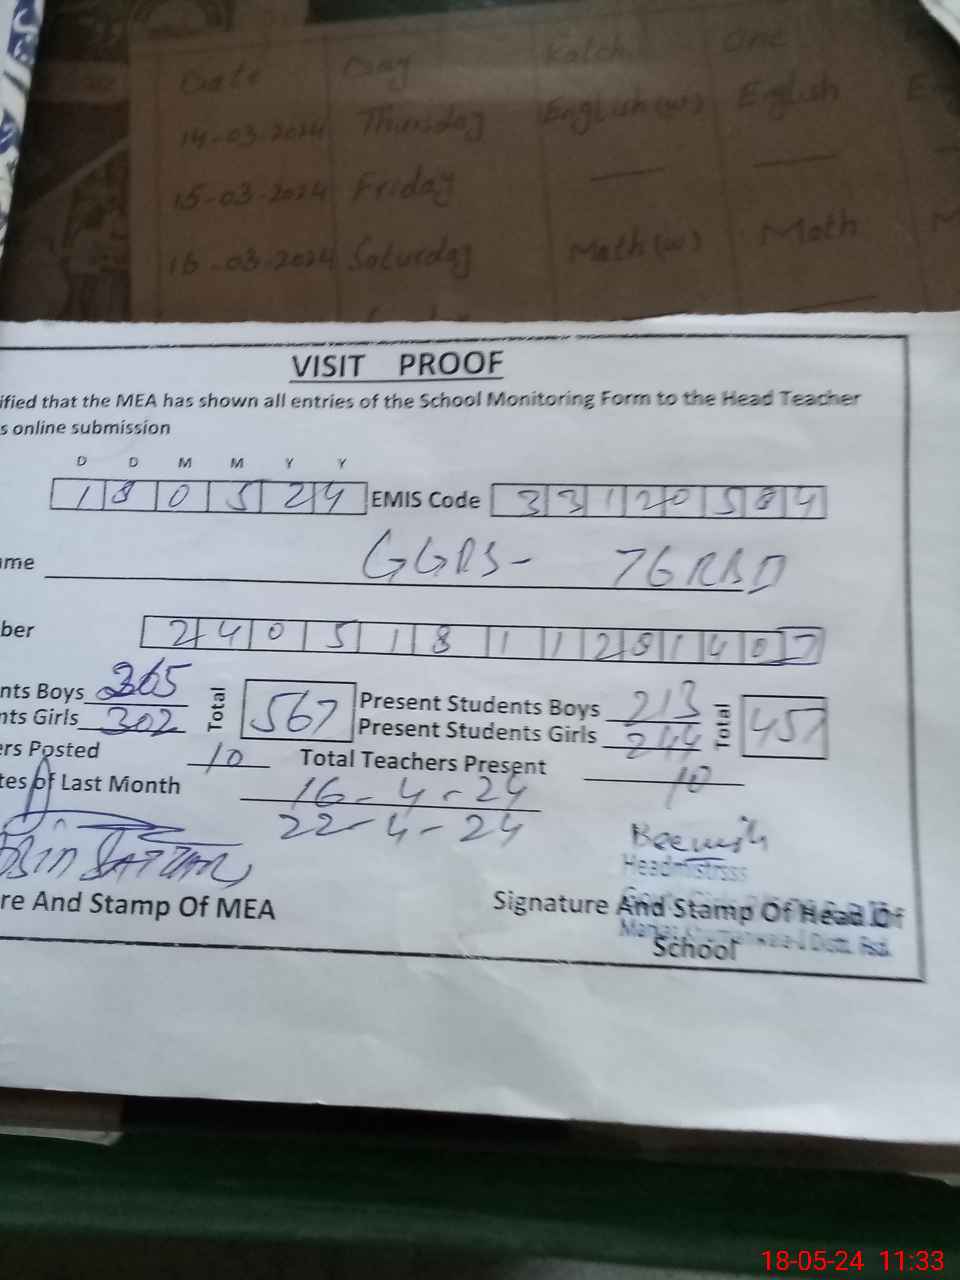 Date Day Katch one
14-03-2024 Thursday English (w) English
15-03-2024 Friday
16-03-2024 Saturday Math (w) Math
VISIT PROOF
ified that the MEA has shown all entries of the School Monitoring Form to the Head Teacher
s online submission
D D M M Y Y
1 8 0 5 2 4 EMIS Code 3 3 1 2 0 5 8 4
me GGPS- 76 RBD
ber 2 4 0 5 1 8 1 1 2 8 1 4 0 7
nts Boys 265 Total 567 Present Students Boys 213 Total 457
nts Girls 302 Present Students Girls 244
ers Posted 10 Total Teachers Present 10
tes of Last Month 16-4-24
22-4-24
Headmistrsss
re And Stamp Of MEA Signature And Stamp Of Head Of
School
18-05-24 11:33